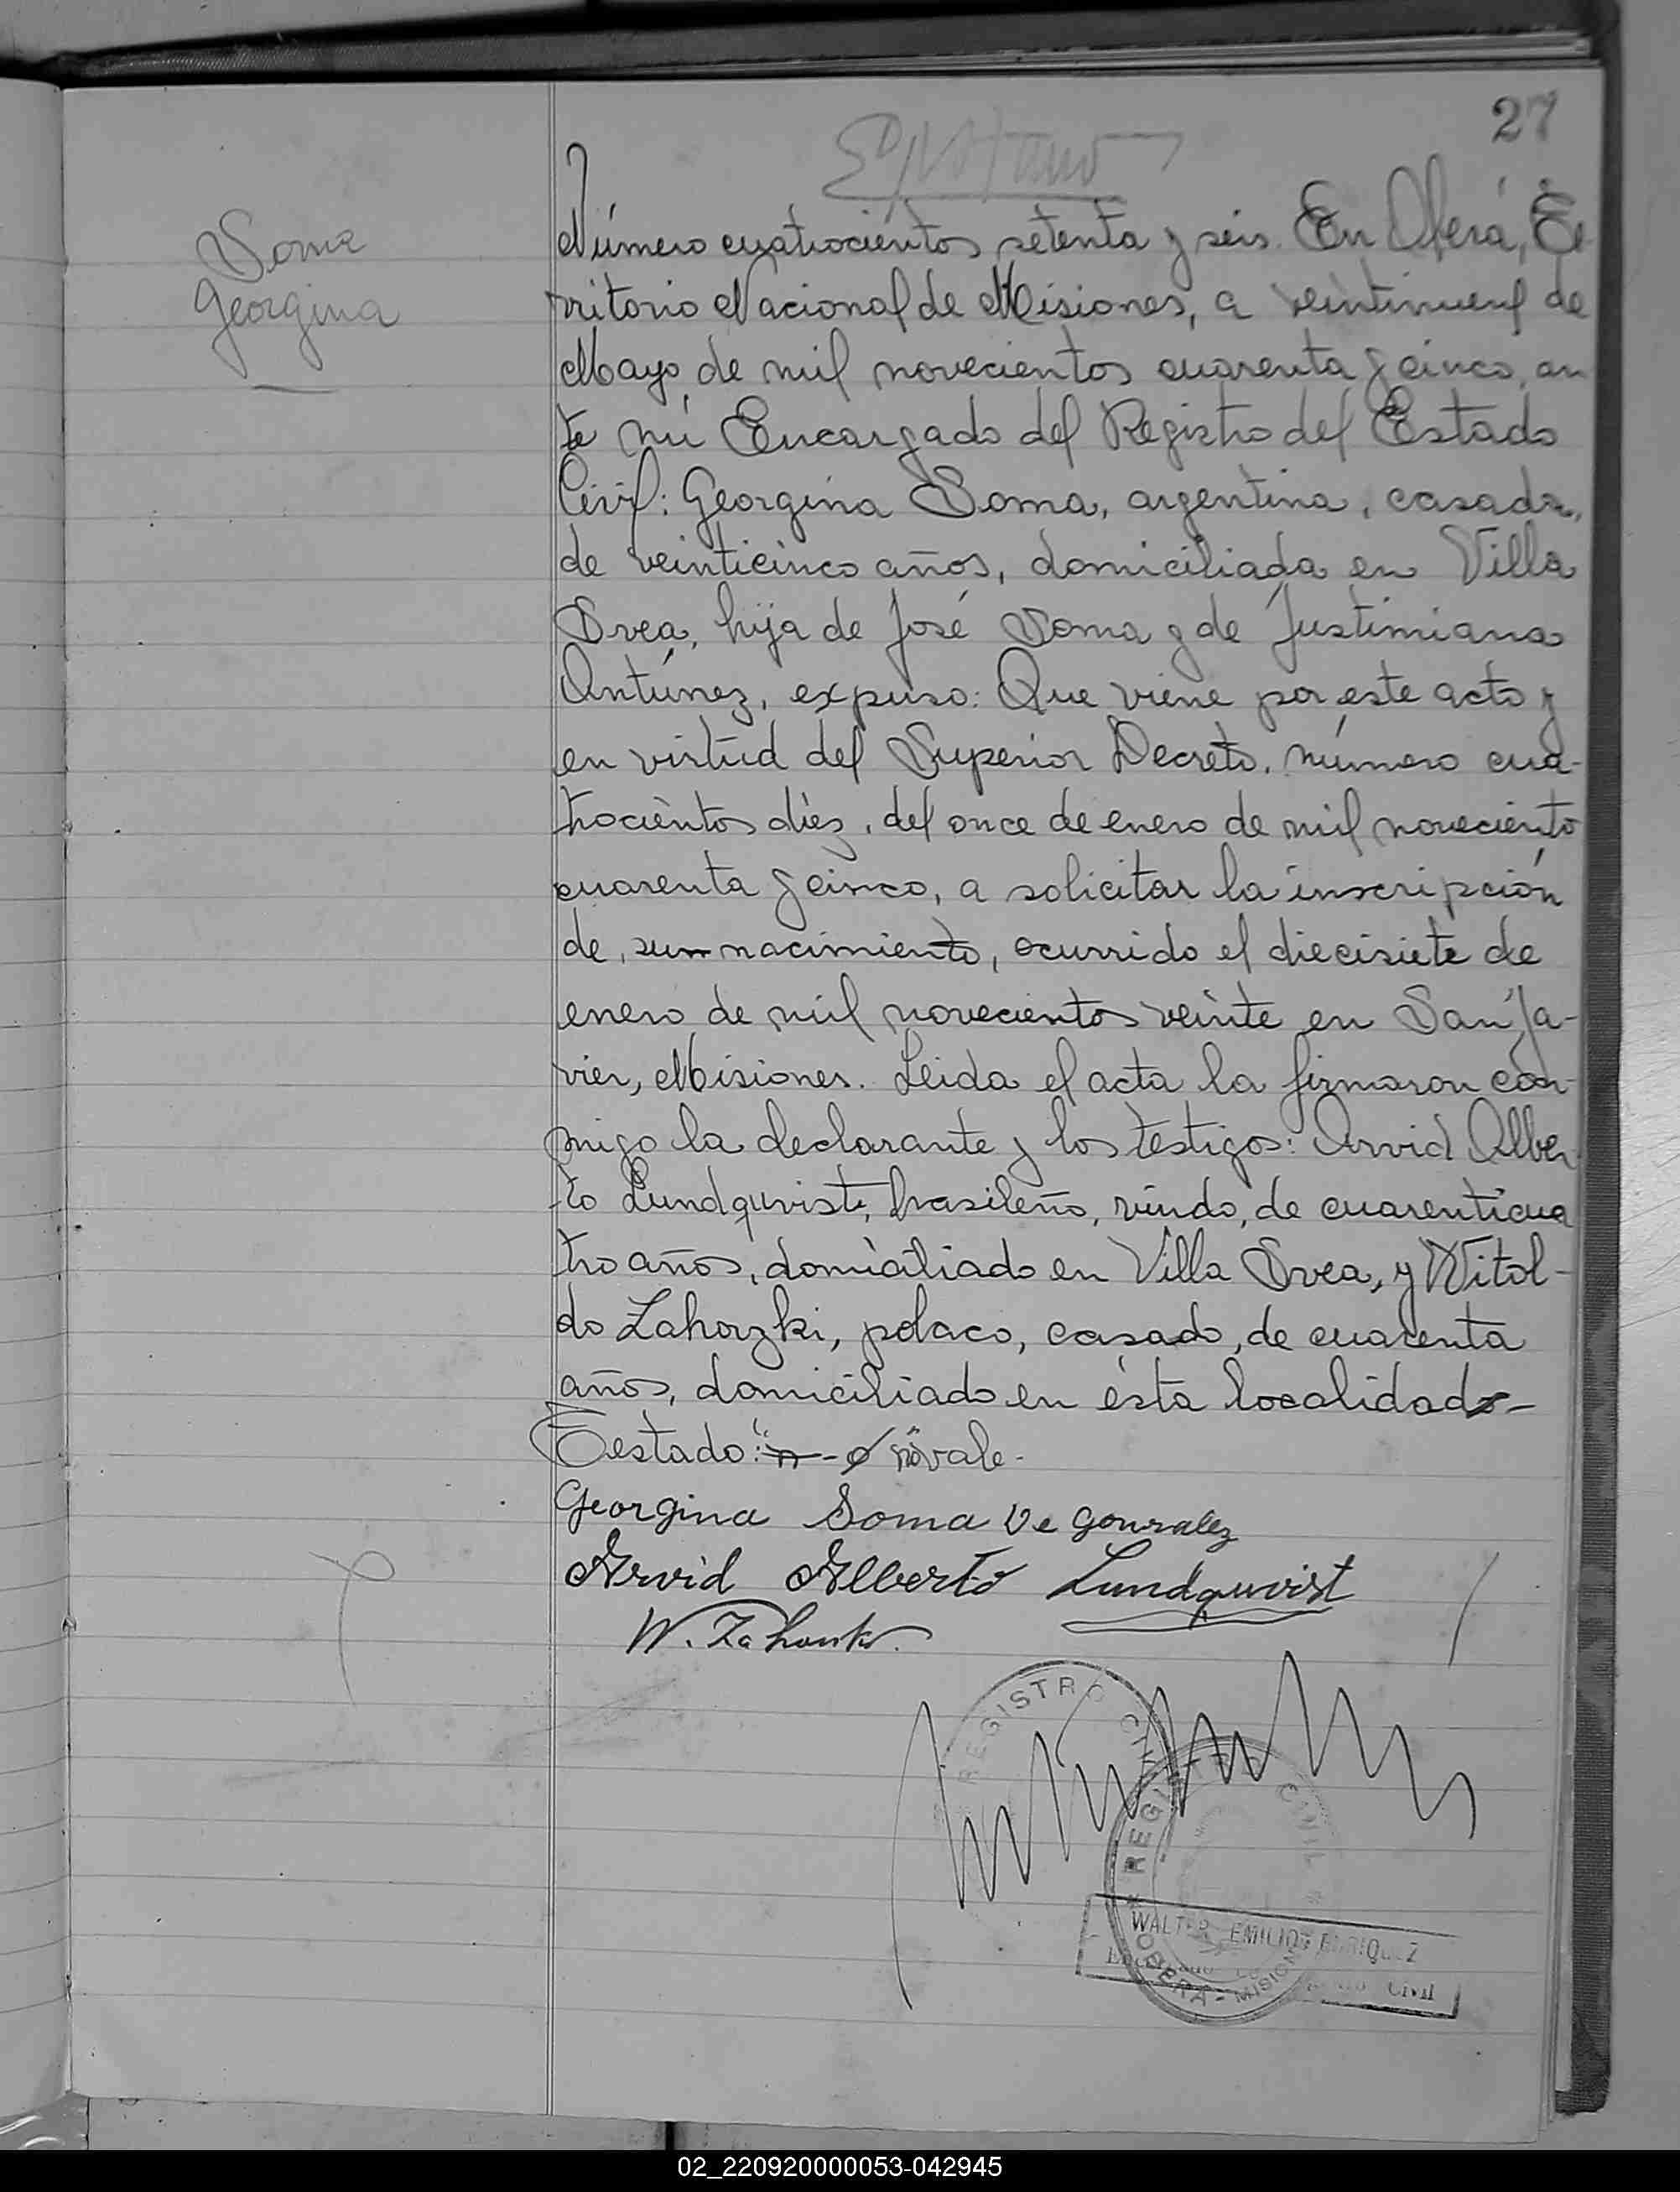 27
Soma
Georgina
Número cuatrocientos setenta y seis. En Oberá, Te-
rritorio Nacional de Misiones, a veintinueve de
Mayo de mil novecientos cuarenta y cinco, an
te mi Encargado del Registro del Estado
Civil: Georgina Soma, argentina, casada,
de veinticinco años, domiciliada en Villa
Svea, hija de José Soma y de Justimiana
Antúnez, expuso: Que viene por este acto y
en virtud del Superior Decreto, número cua-
trocientos diez, del once de enero de mil noveciento
cuarenta y cinco, a solicitar la inscripción
de su nacimiento, ocurrido el diecisiete de
enero de mil novecientos veinte en San Ja-
vier, Misiones. Leida el acta la firmaron con-
migo la declarante y los testigos: Arvid Alber-
to Lundquvist, brasileño, viudo, de cuarenticua
tro años, domiciliado en Villa Svea, y Witol-
do Zahorzki, polaco, casado, de cuarenta
años, domiciliado en ésta localidad-
Testado: "n - o" no vale.
Georgina Soma de Gonzalez
Arvid Alberto Lundquvist
W.
REGISTRO CIVIL
REGISTRO CIVIL
OBERÁ - MISIONES
WALTER EMILIO ENRIQUEZ
Civil
02_220920000053-042945